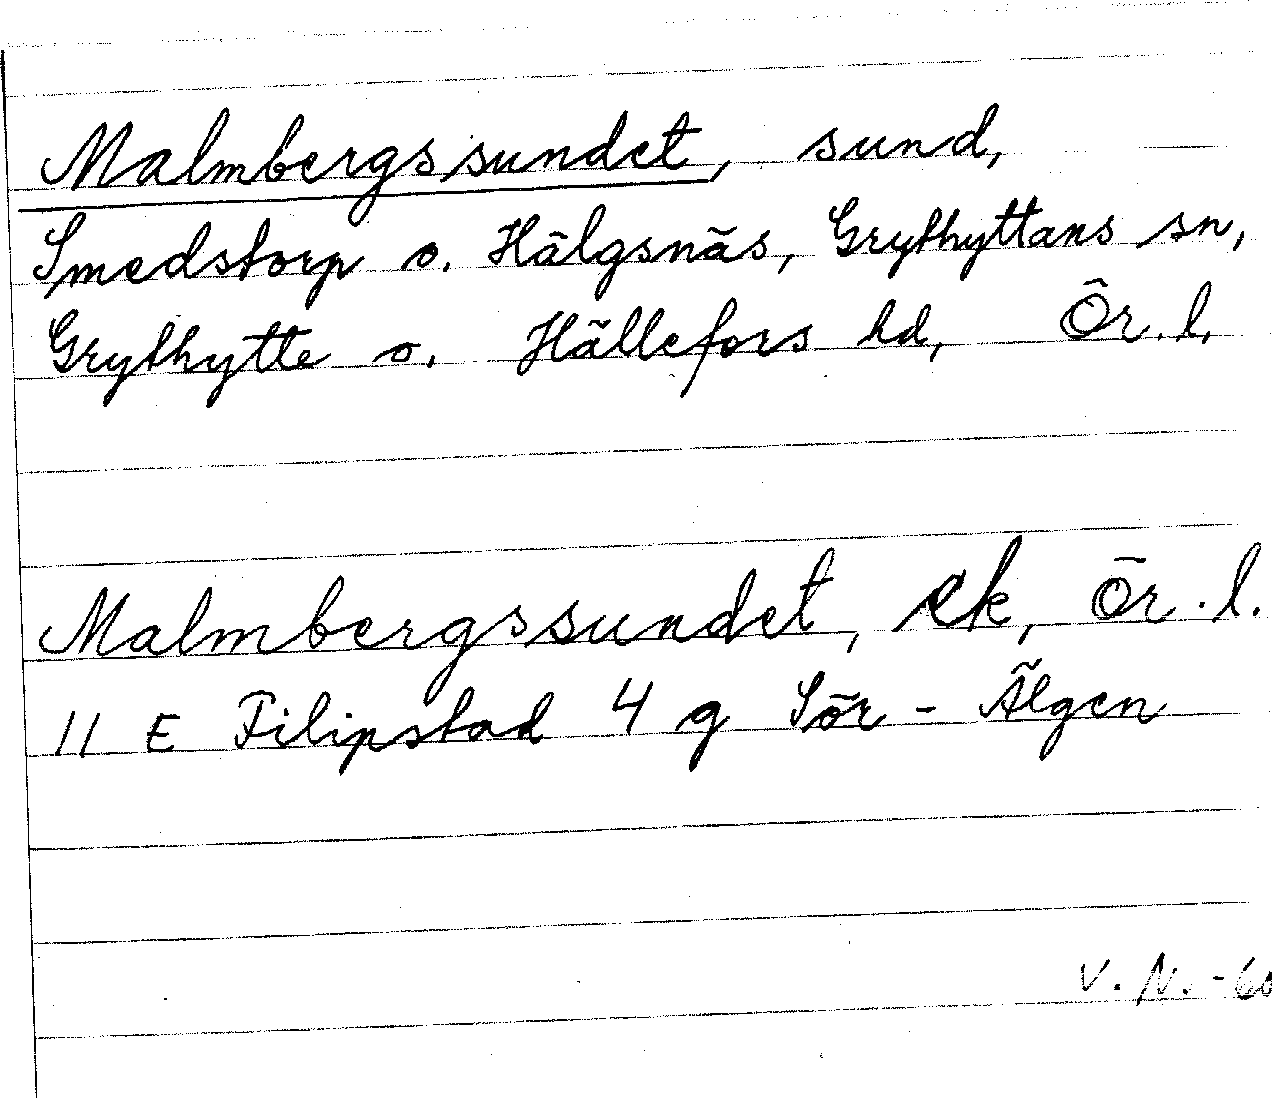 Malmbergssundet, sund,
Smedstorp o. Hälgsnäs, Grythyttans sn,
Grythytte o. Hällefors hd, Ör. l.
Malmbergssundet, ek, Ör. l.
11 E Filipstad 4 g Sör - Älgen
V. N. -60